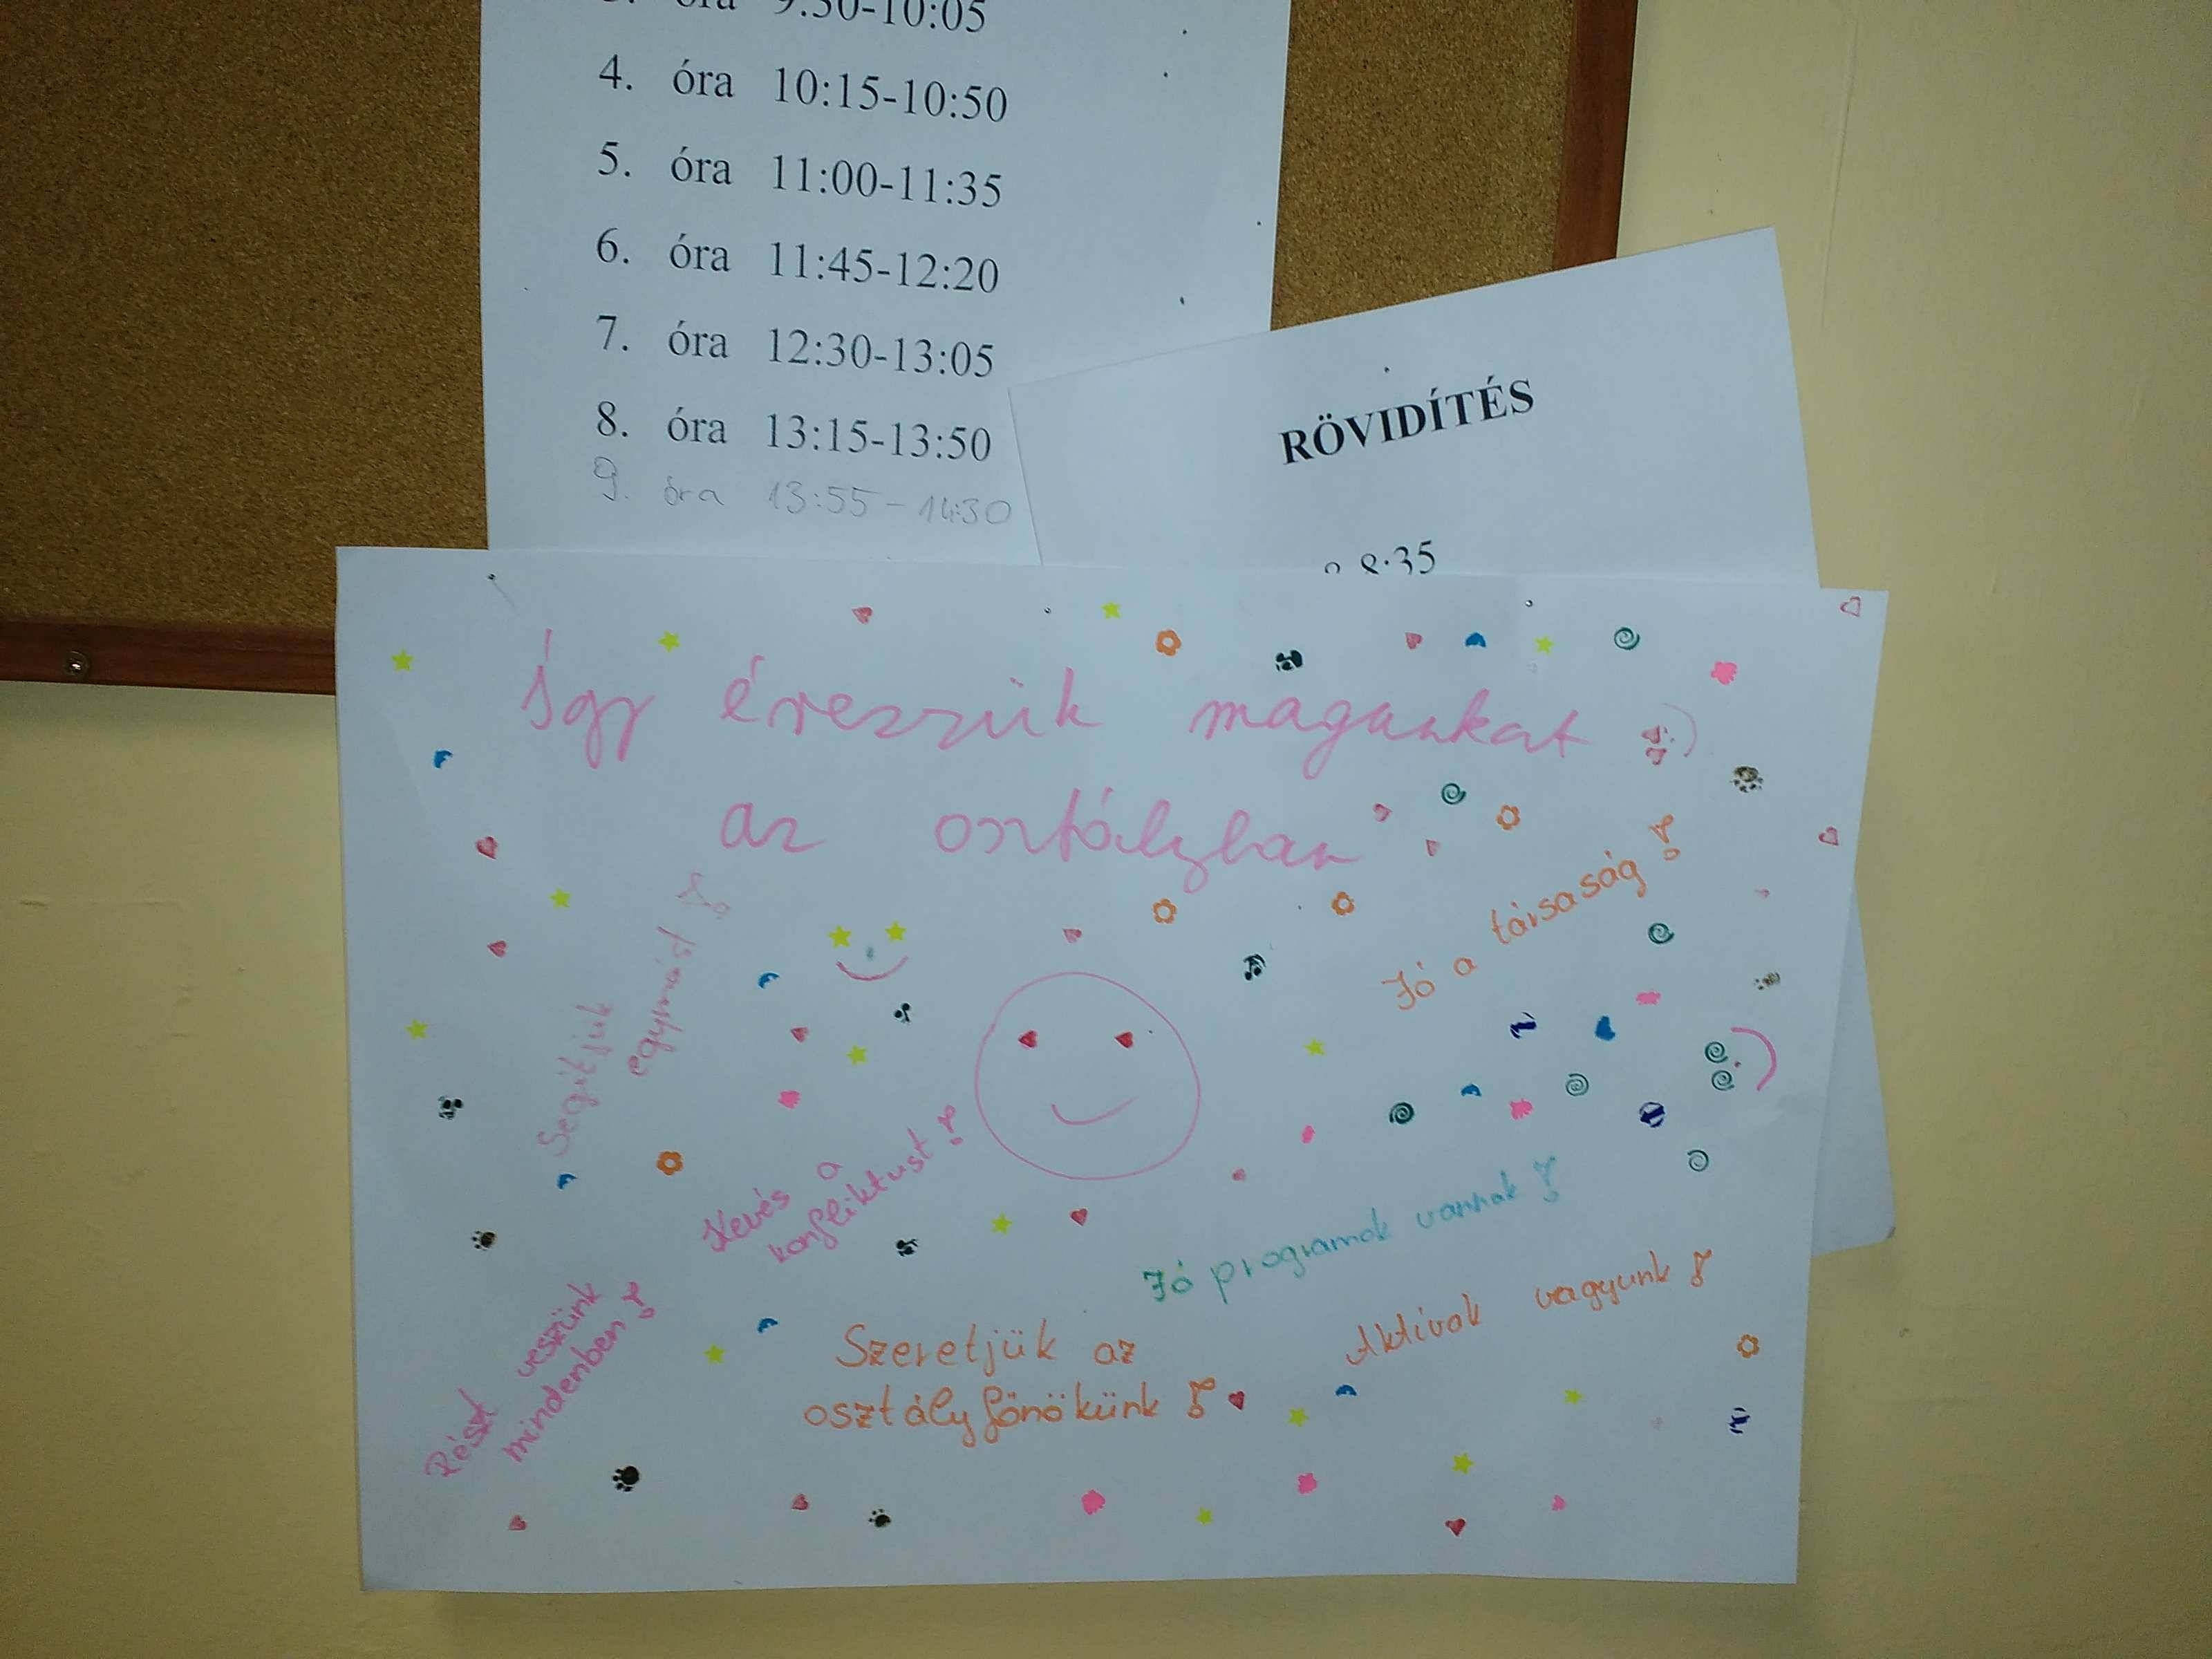 óra 9:30-10:05
4. óra 10:15-10:50
5. óra 11:00-11:35
6. óra 11:45-12:20
7. óra 12:30-13:05
8. óra 13:15-13:50
9. óra 13:55-14:30
RÖVIDÍTÉS
8:35
Így érezzük magunkat
az osztályban
Jó a társaság!
Segítjük
egymást!
Kevés a
konfliktust!
Jó programok vannak!
Aktívak vagyunk!
Szeretjük az
osztályfőnökünk!
Részt veszünk
mindenben!